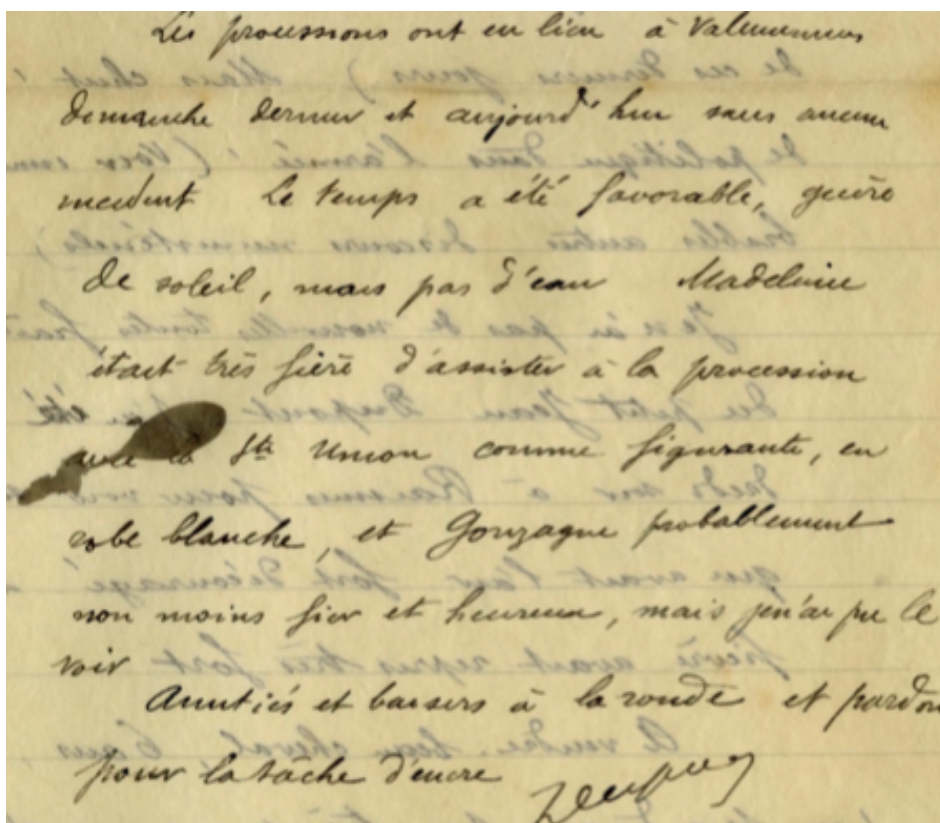 Les processions ont eu lieu à Valenciennes
dimanche dernier et aujourd'hui sans aucun
incident Le temps a été favorable, guère
de soleil, mais pas d'eau Madeleine
était très fière d'assister à la procession
avec la Ste Union comme figurante, en
robe blanche, et Gonzague probablement
non moins fier et heureux, mais je n'ai pu le
voir
Amitiés et baisers à la ronde et pardon
pour la tâche d'encre